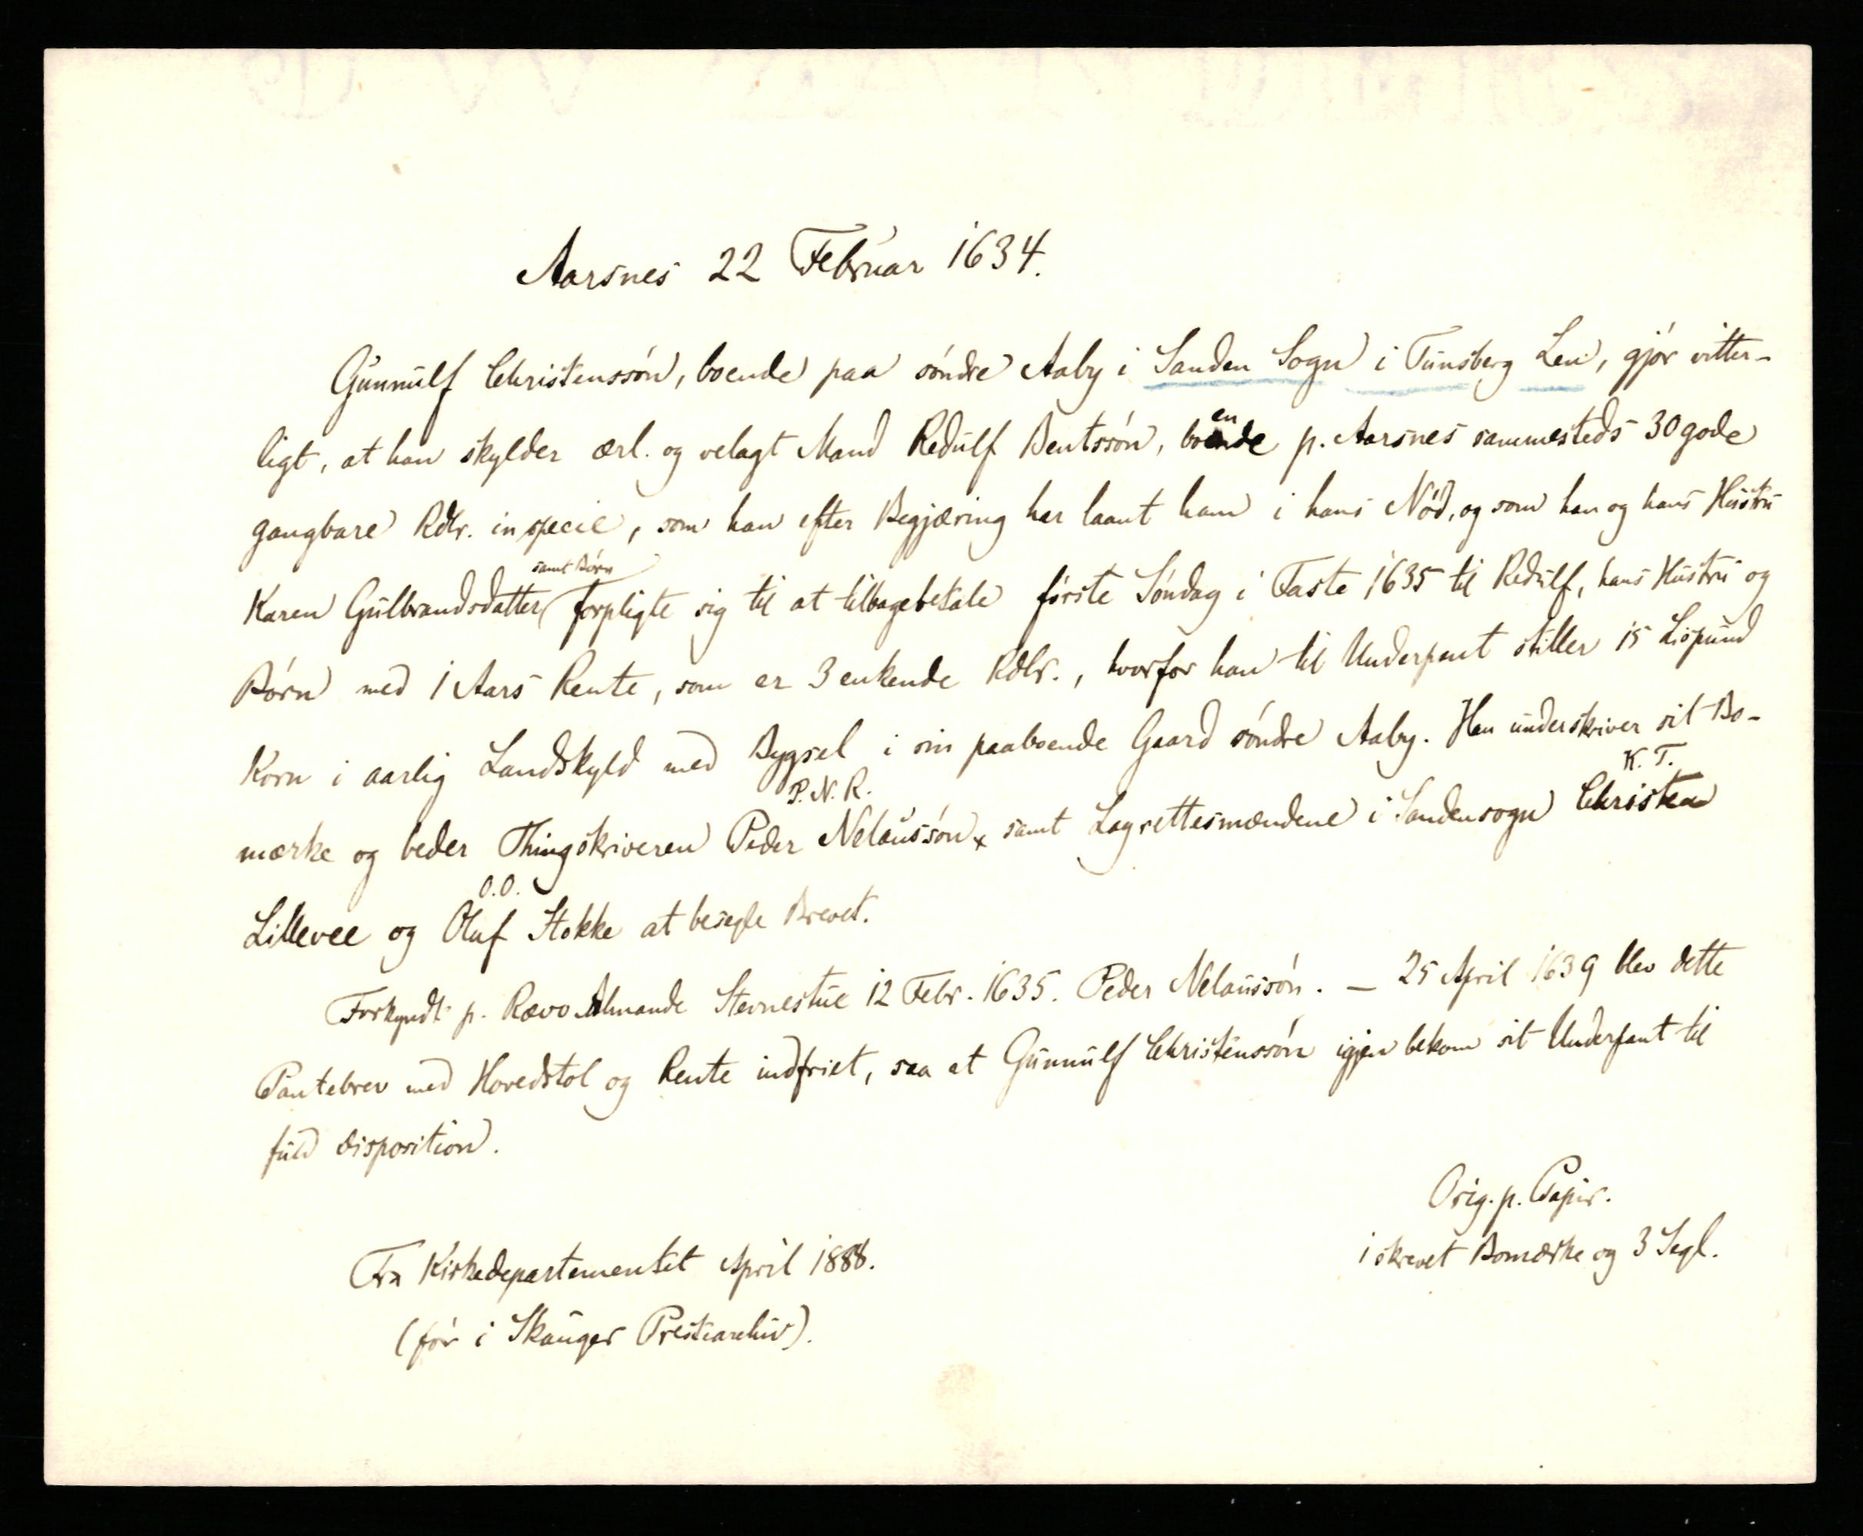 Aarsnes 22 Februar 1634.
Gunnulf Christenssön, boende paa söndre Aaby i Sanden Sogn i Tunsberg Len, gjör vitter-
ligt, at han skylder ærl. og velagt Mand Redulf Bentssön, boende p. Aarsnes sammesteds 30 gode
en
gangbare Rdlr. in specie, som han efter Begjæring har laant ham i hans Nöd, og som han og hans Hustru
samt Börn
Karen Gulbrandsdatter forpligte sig til at tilbagebetale förste Söndag i Faste 1635 til Redulf, hans Hustru og
Börn med 1 Aars Rente, som er 3 enkende Rdlr., hvorfor han til Underpant stiller 15 Lispund
Korn i aarlig Landskyld med Bygsel i sin paaboende Gaard söndre Aaby. Han underskriver sit Bo-
P. N. R. K. T.
mærke og beder Thingskriveren Peder Nelaussön x samt Lagrettesmændene i Sandensogn Christen
O. O.
Lillevee og Oluf Stokke at besegle Brevet.
Forkyndt p. Rævo Almande Stevnestue 12 Febr. 1635. Peder Nelaussön. — 25 April 1639 blev dette
Pantebrev med Hovedstol og Rente indfriet, saa at Gunnulf Christenssön igjen bekom sit Underpant til
fuld Disposition.
Orig. p. Papir.
1 skrevet Bomærke og 3 Segl.
Fra Kirkedepartementet April 1888.
(för i Skauger Prestearchiv).